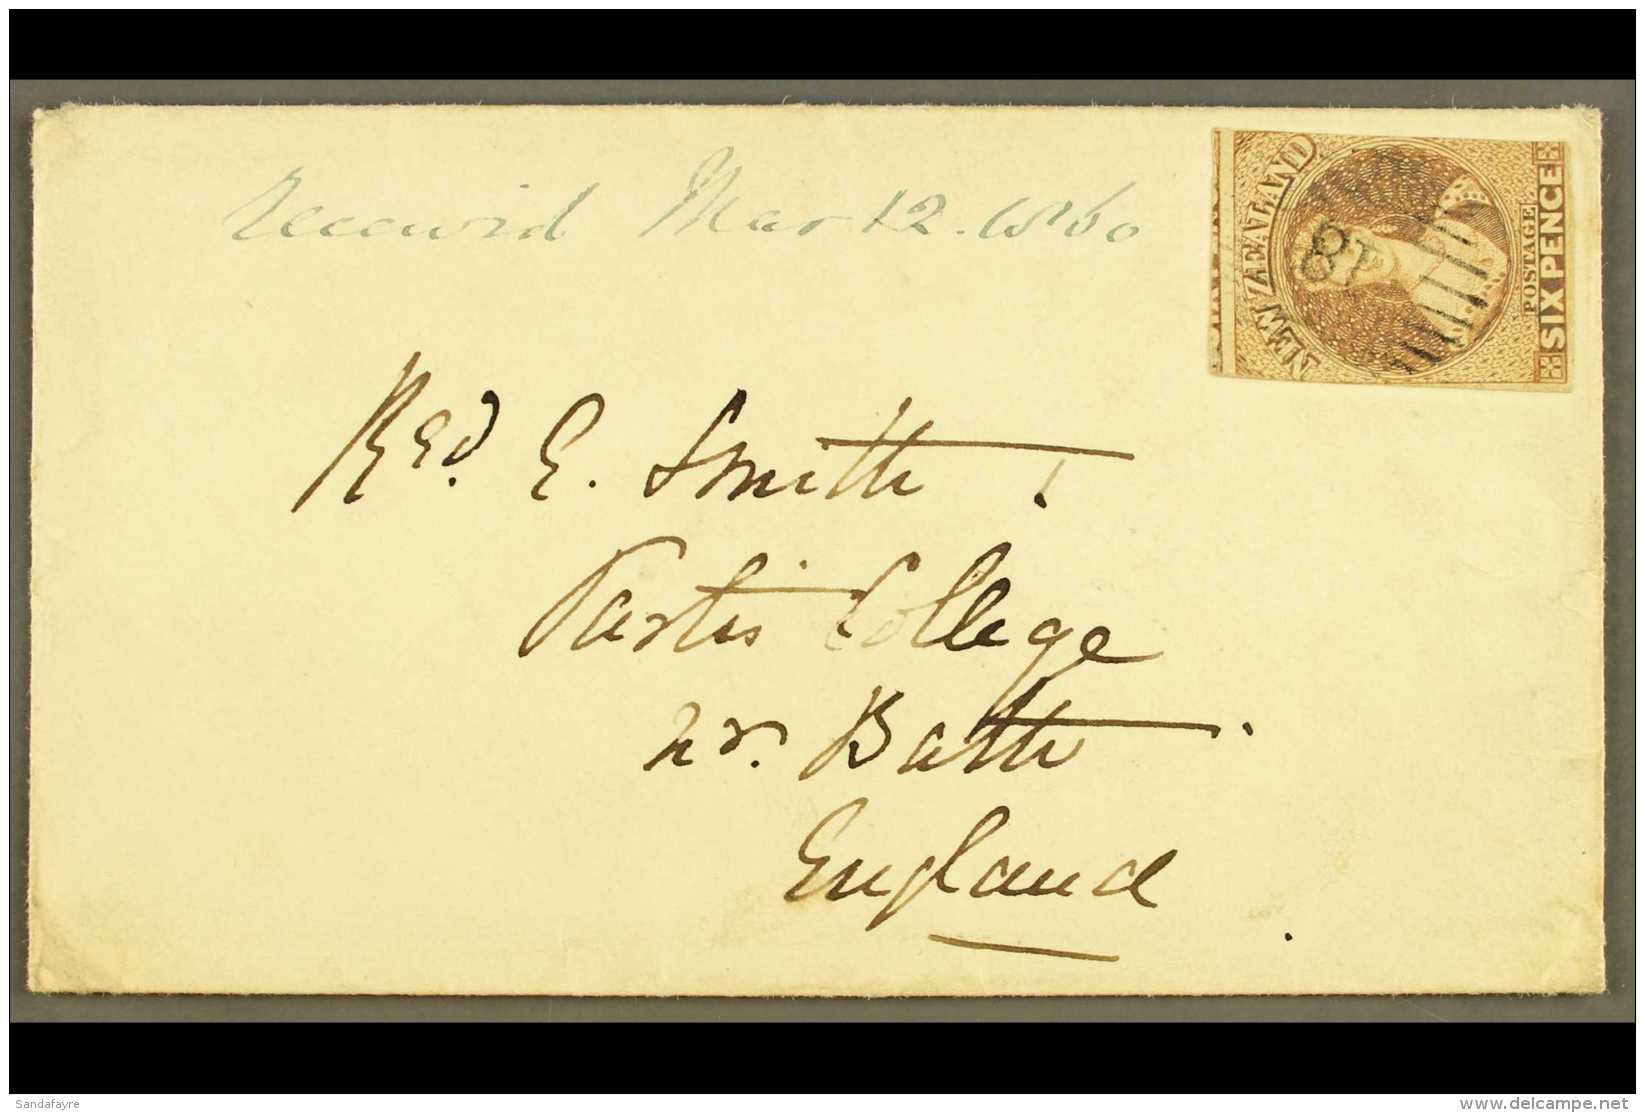 Received Mar 12. 1860
NEW ZEALAND
POSTAGE
SIX PENCE
18
Revd. E. Smith
Partis College
nr. Bath
England
Sandafayre
delcampe.net